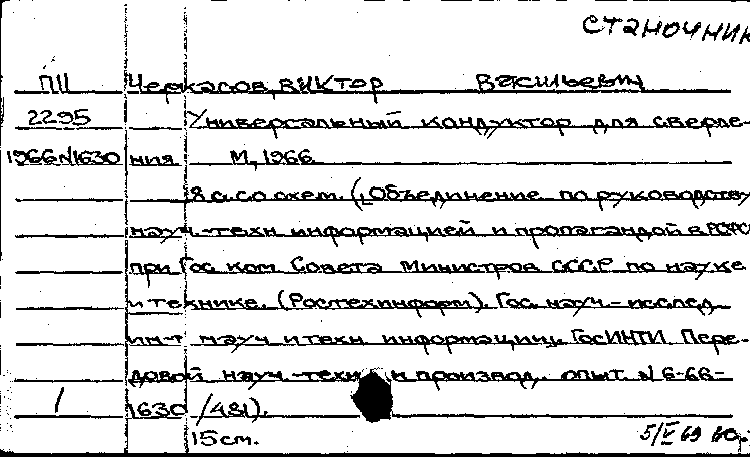 станочник
ПII Черкасов, Виктор Васильевич
2295 Универсальный кондуктор для сверле-
1966 N1630 ния М, 1966
8 с. со схем. (Объединение по руководству
науч.-техн информацией и пропагандой в РСФСР
при Гос ком Совета Министров СССР по науке
и технике. (Ростехинформ). Гос науч.-исслед.
ин-т науч и техн информации. ГосИНТИ Пере-
довой науч.-техн и производ. опыт. N 6-66-
/ 1630/481).
15 см.
5/V 69